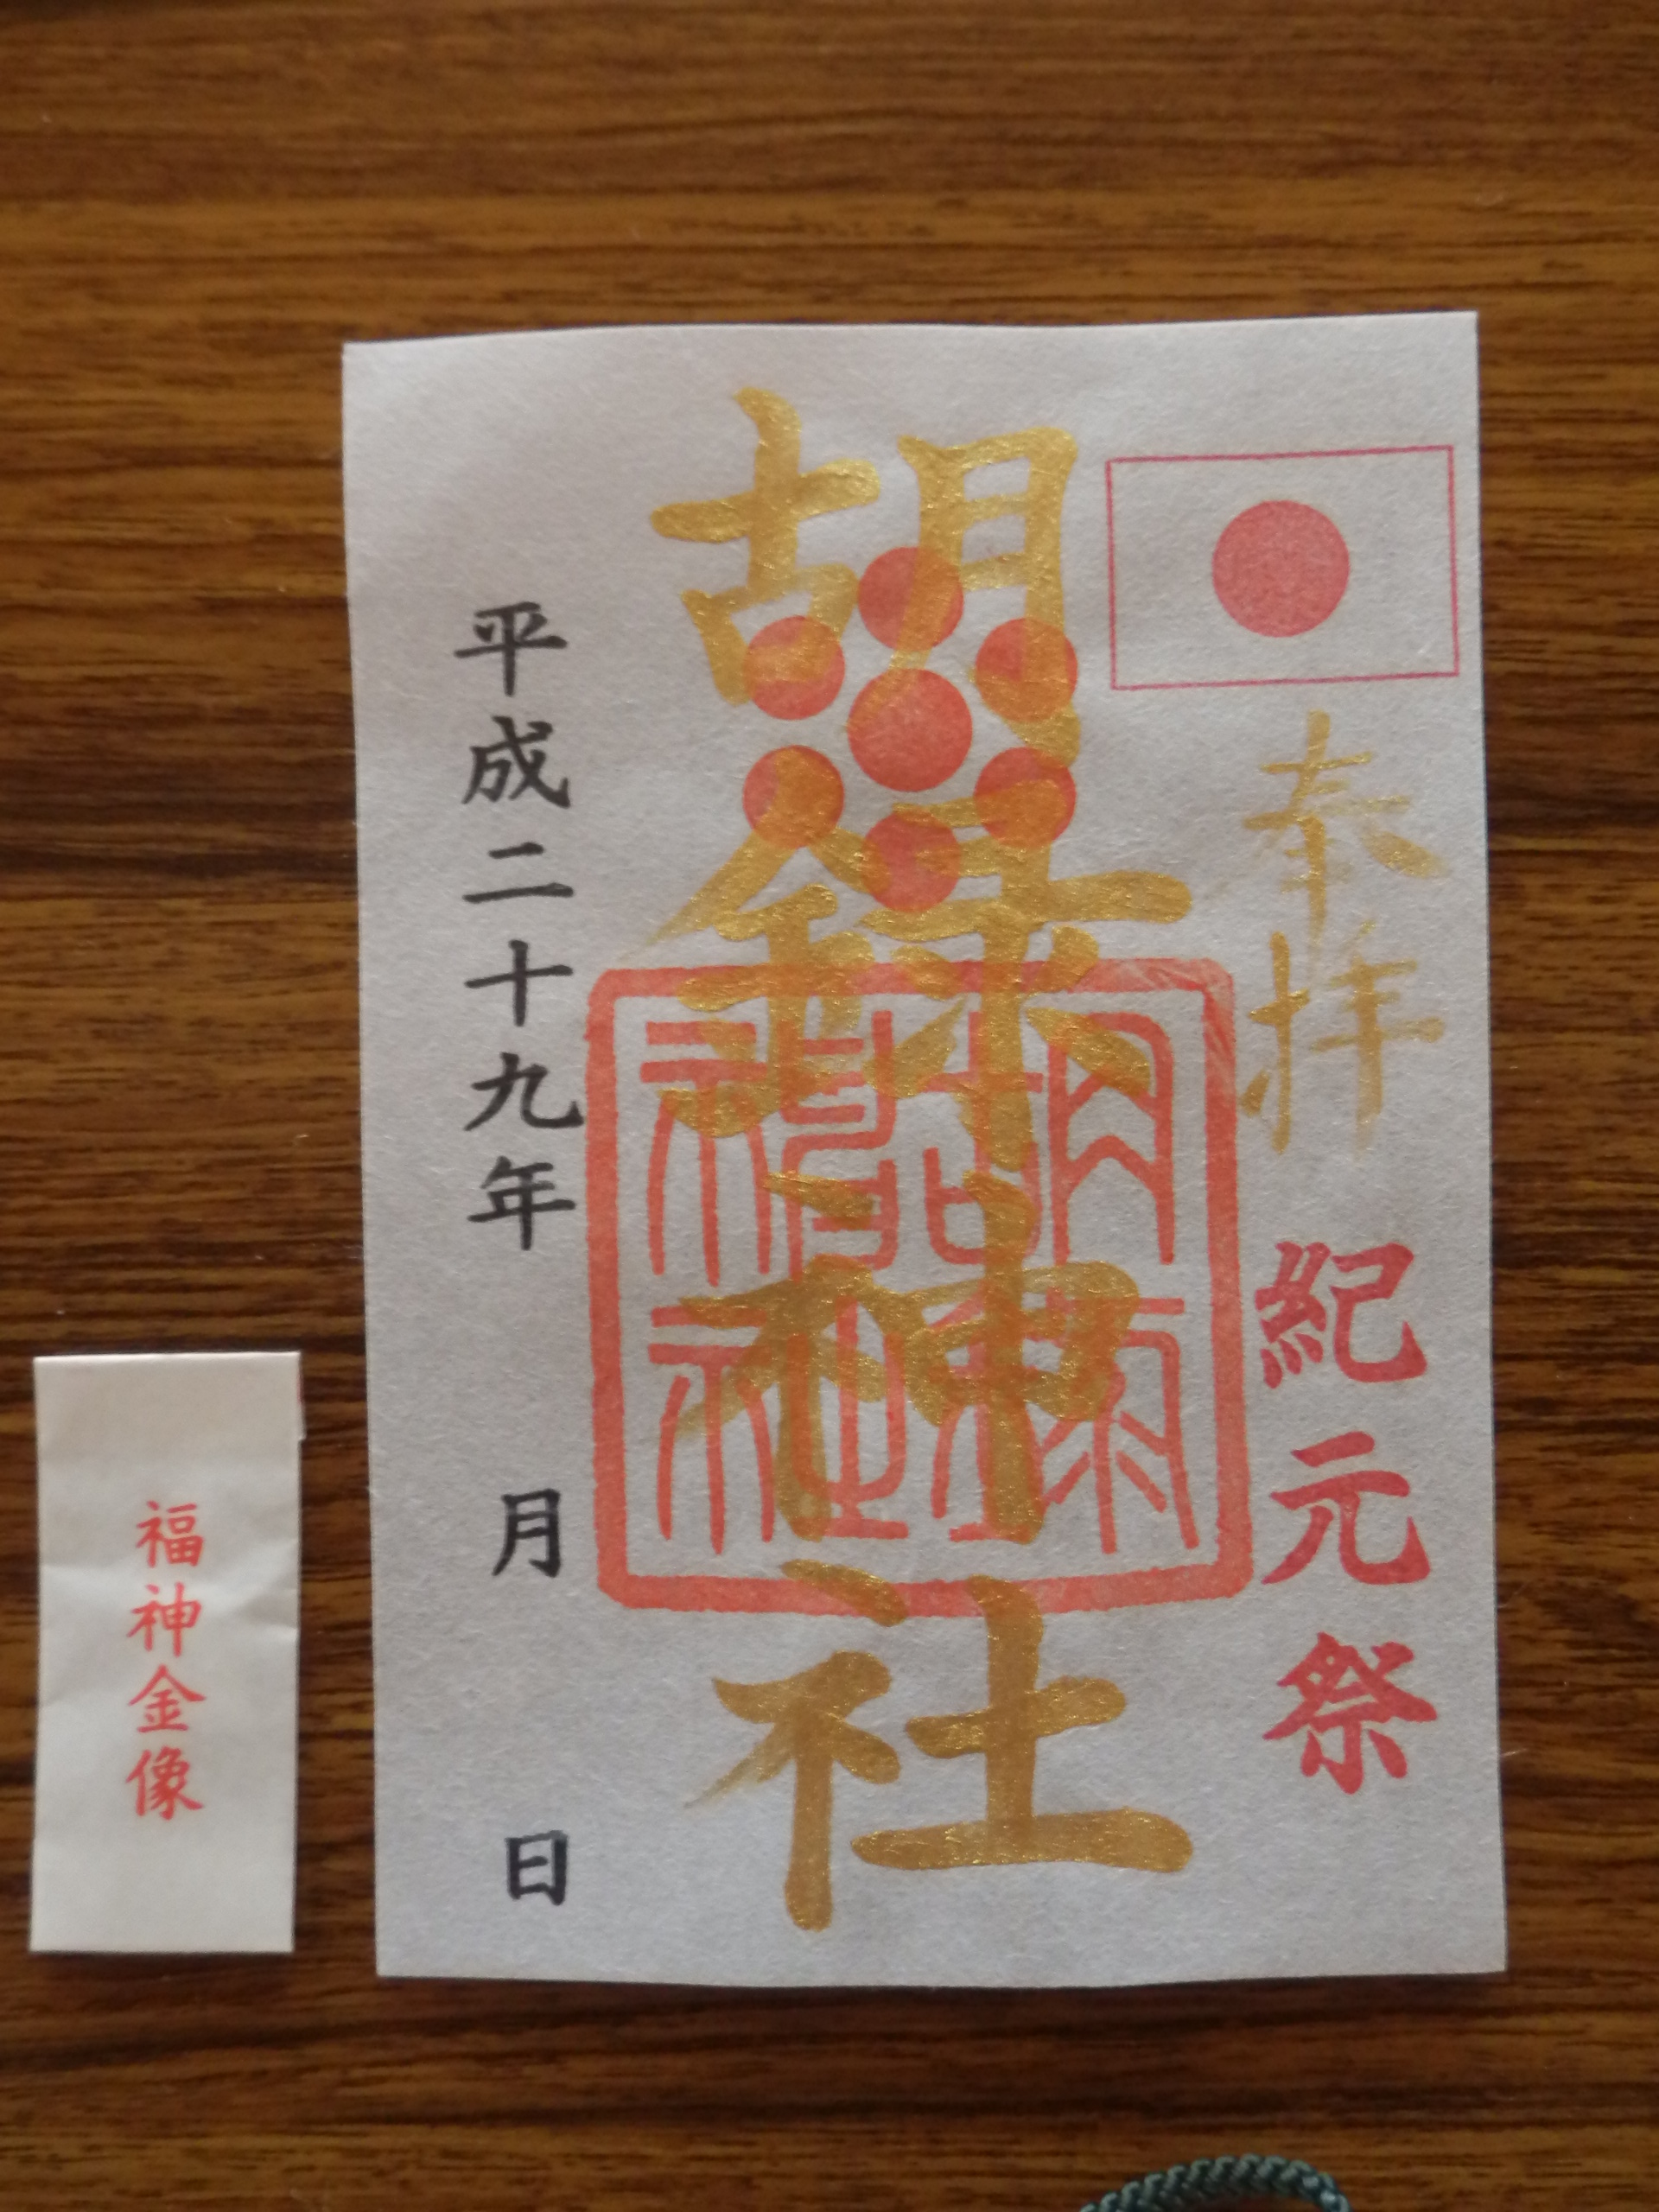 奉拝
紀元祭
胡録神社
平成二十九年 月 日
福神金像